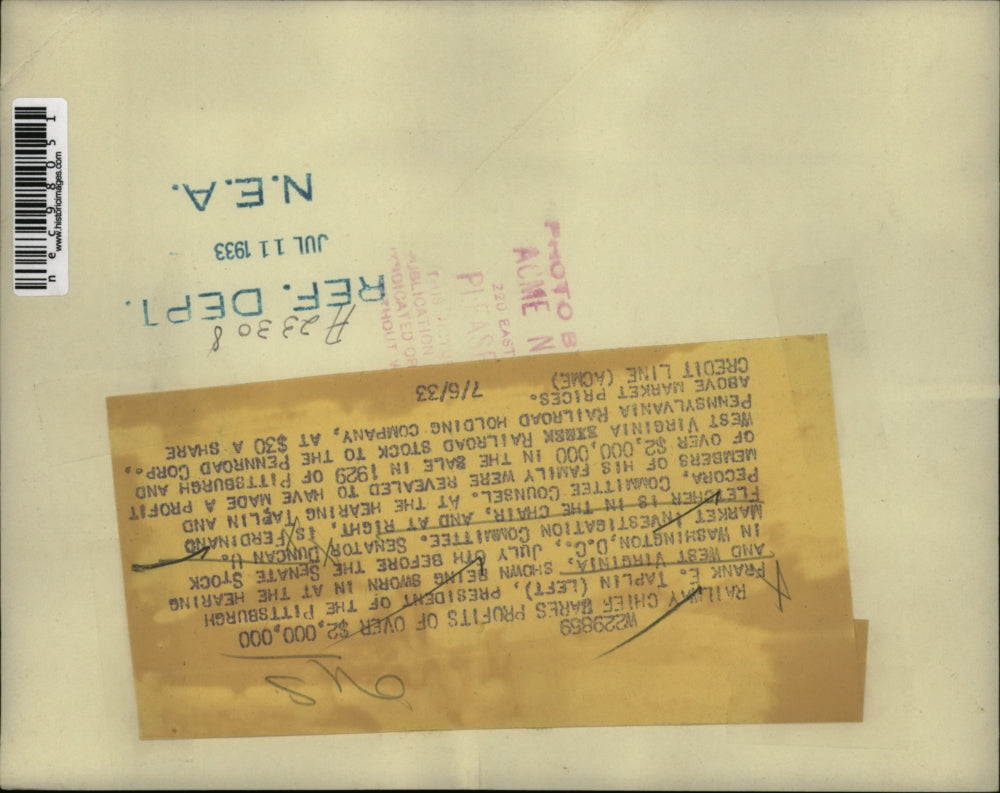 W229859
RAILWAY CHIEF BARES PROFITS OF OVER $2,000,000
FRANK E. TAPLIN (LEFT), PRESIDENT OF THE PITTSBURGH
AND WEST VIRGINIA, SHOWN BEING SWORN IN AT THE HEARING
IN WASHINGTON,D.C., JULY 6TH BEFORE THE SENATE STOCK
MARKET INVESTIGATION COMMITTEE. SENATOR DUNCAN U.
FLETCHER IS IN THE CHAIR, AND AT RIGHT, IS FERDINAND
PECORA, COMMITTEE COUNSEL. AT THE HEARING TAPLIN AND
MEMBERS OF HIS FAMILY WERE REVEALED TO HAVE MADE A PROFIT
OF OVER $2,000,000 IN THE SALE IN 1929 OF PITTSBURGH AND
WEST VIRGINIA RAILROAD STOCK TO THE PENNROAD CORP.,
PENNSYLVANIA RAILROAD HOLDING COMPANY, AT $30 A SHARE
ABOVE MARKET PRICES.
CREDIT LINE (ACME) 7/6/33
REF. DEPT.
JUL 11 1933
N.E.A.
PHOTO B
ACME N
220 EAST
PLEAS
THIS
PUBLICATION
INDICATED OR
nec98051
www.historicimages.com